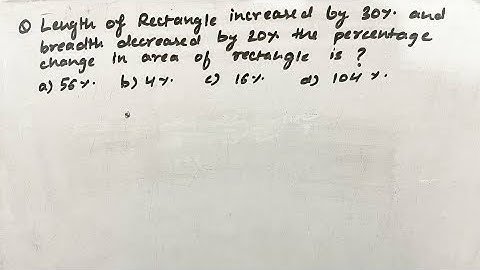 Q Length of Rectangle increased by 30%. and
breadth decreased by 20% the percentage
change in area of rectangle is ?
a) 56%. b) 4%. c) 16%. d) 104%.